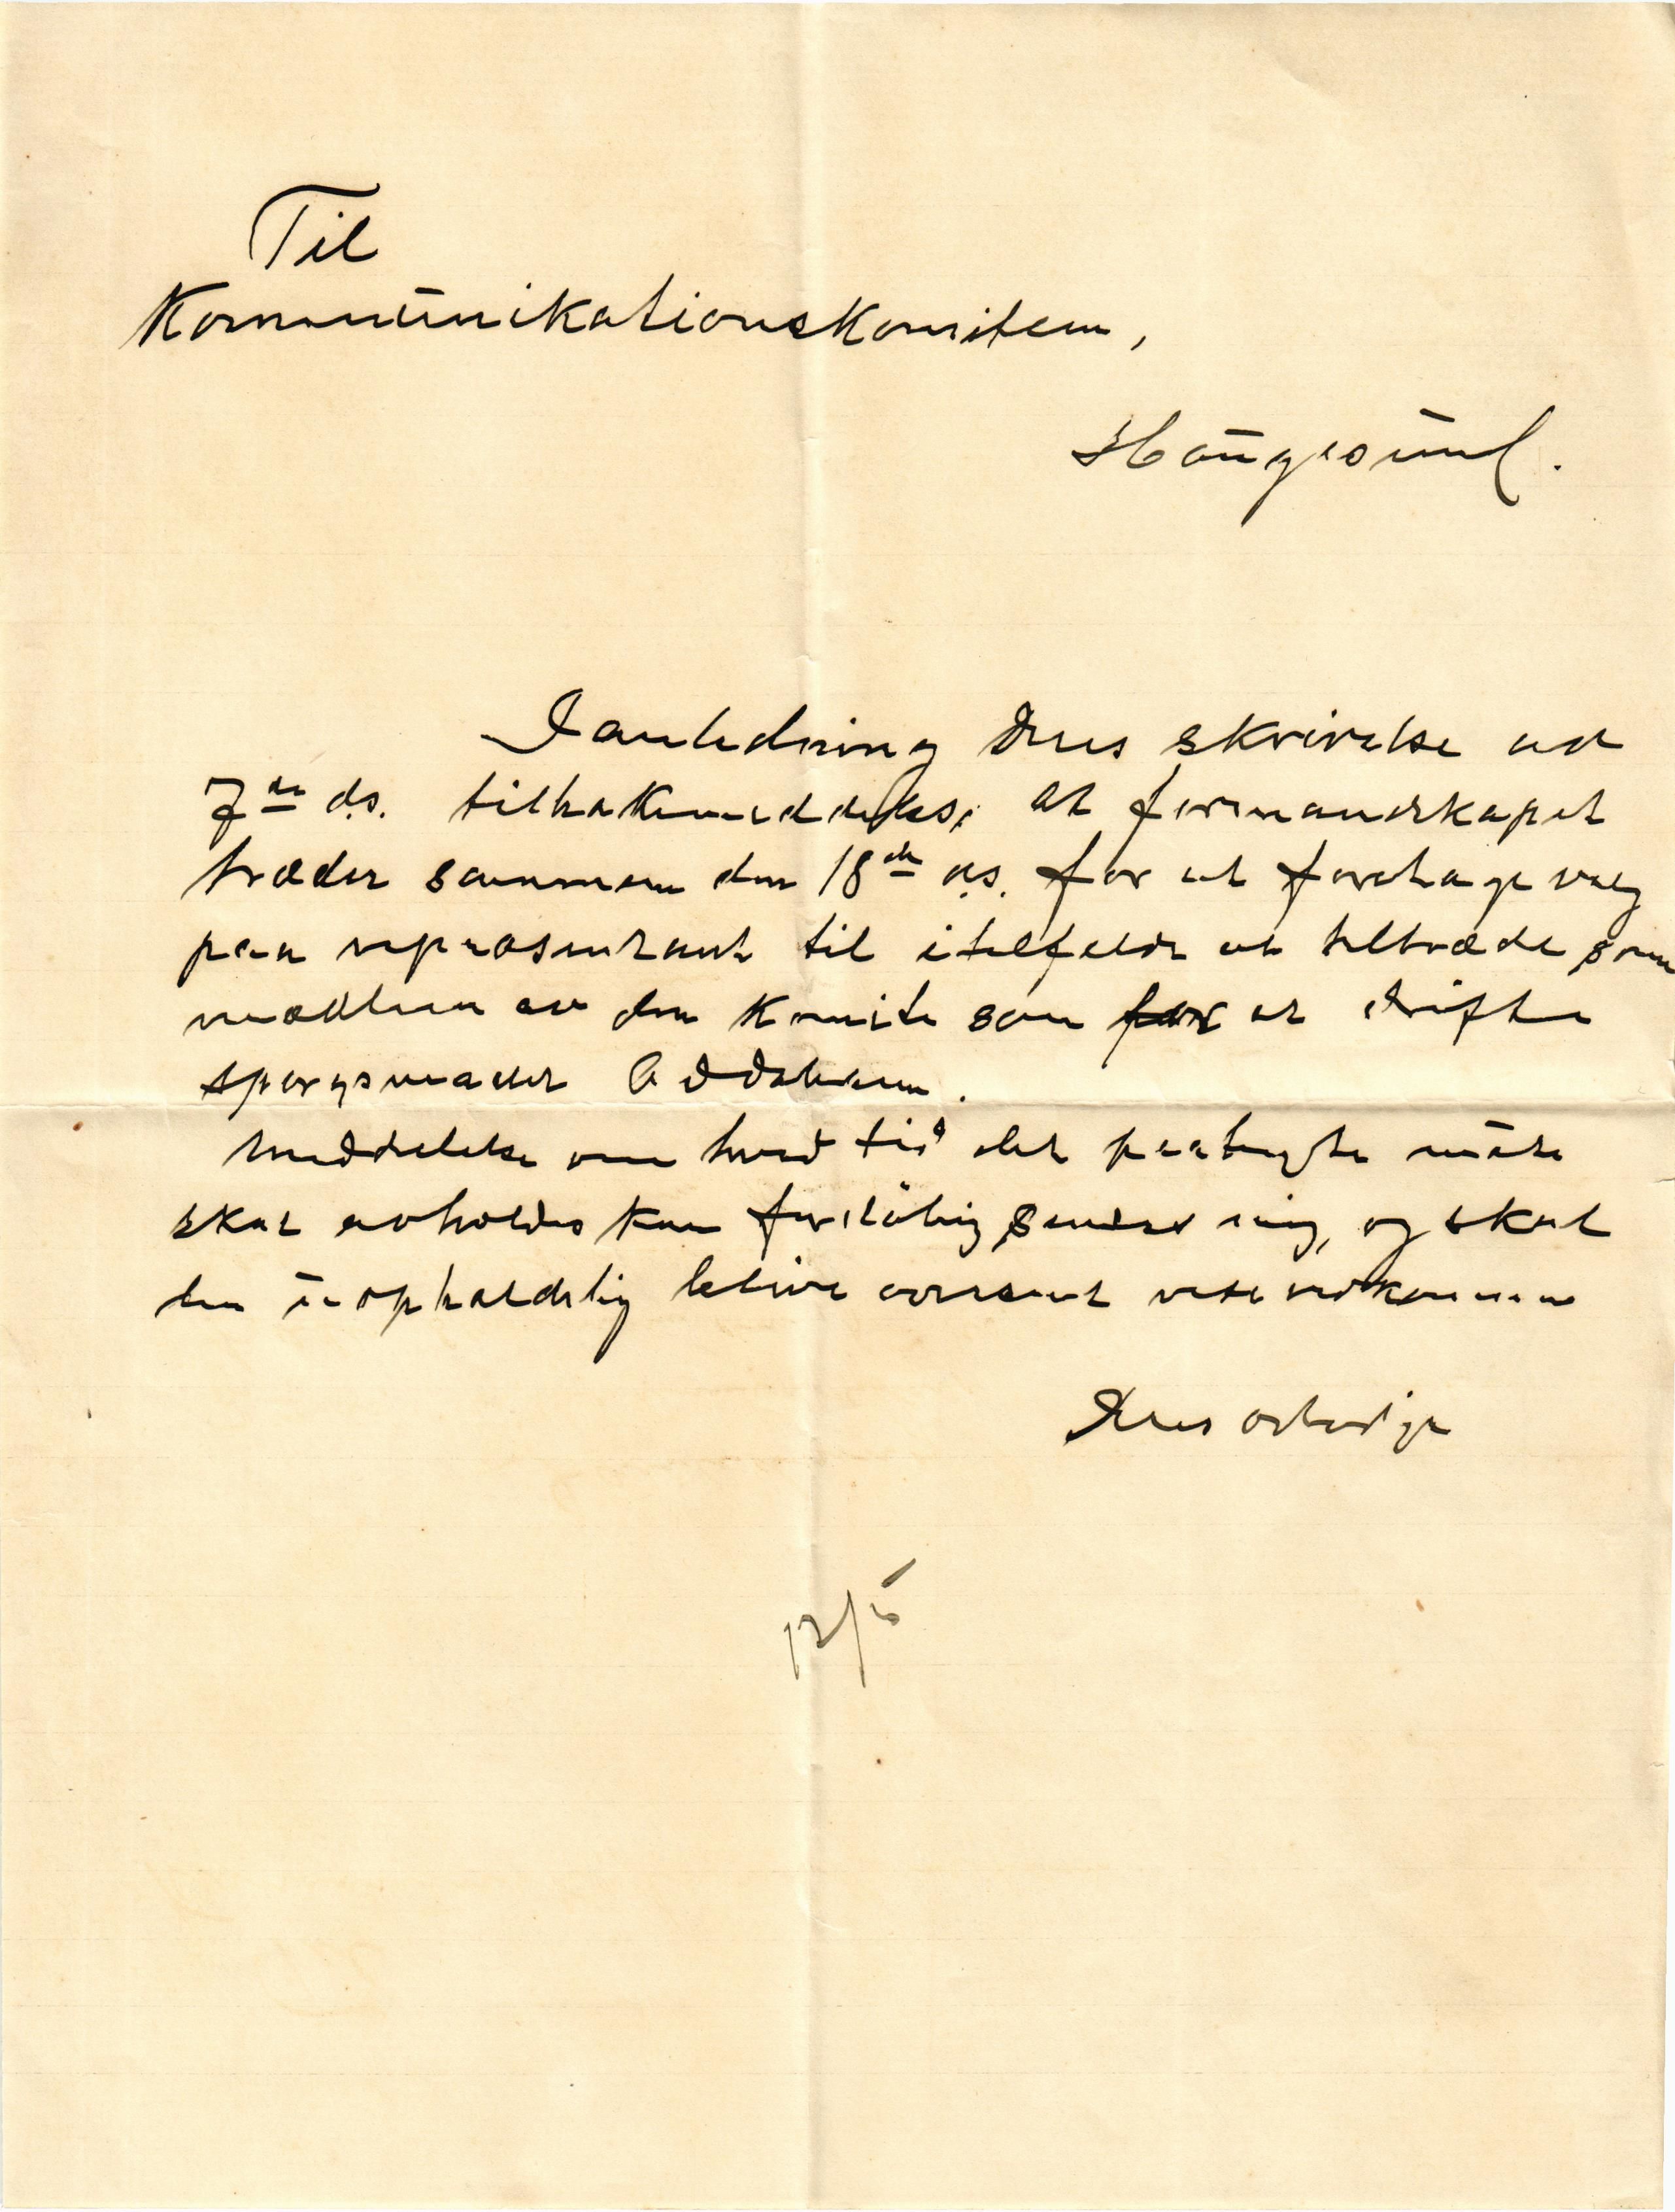 Til
Kommunikationskomiteen,
Haugesund.
I anledning Deres skrivelse av
7de ds. tilbakemeddeles, at formandskapet
træder sammen den 18de ds. for at foreta valg
paa repræsentant til i tilfælde at tiltræde som
medlem av den komite som for at drifte
spørgsmaalet Oddabanen.
Meddelelse om hvad tid det paatænkte møte
skal avholdes kan foreløbig sendes mig, og skal
den uopholdelig bli oversent vedkommende
Deres ærbødige
12/5